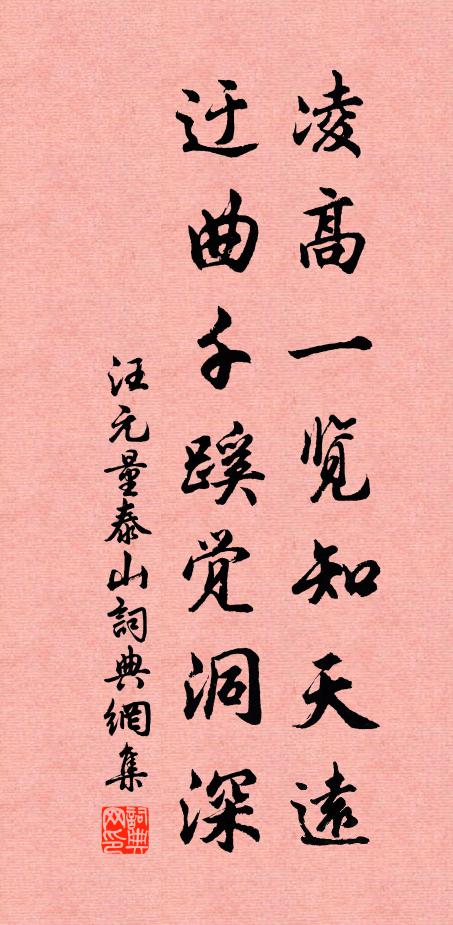 凌高一览知天遠
迂曲千蹊觉洞深
汪元量泰山詞典網集
詞典网印